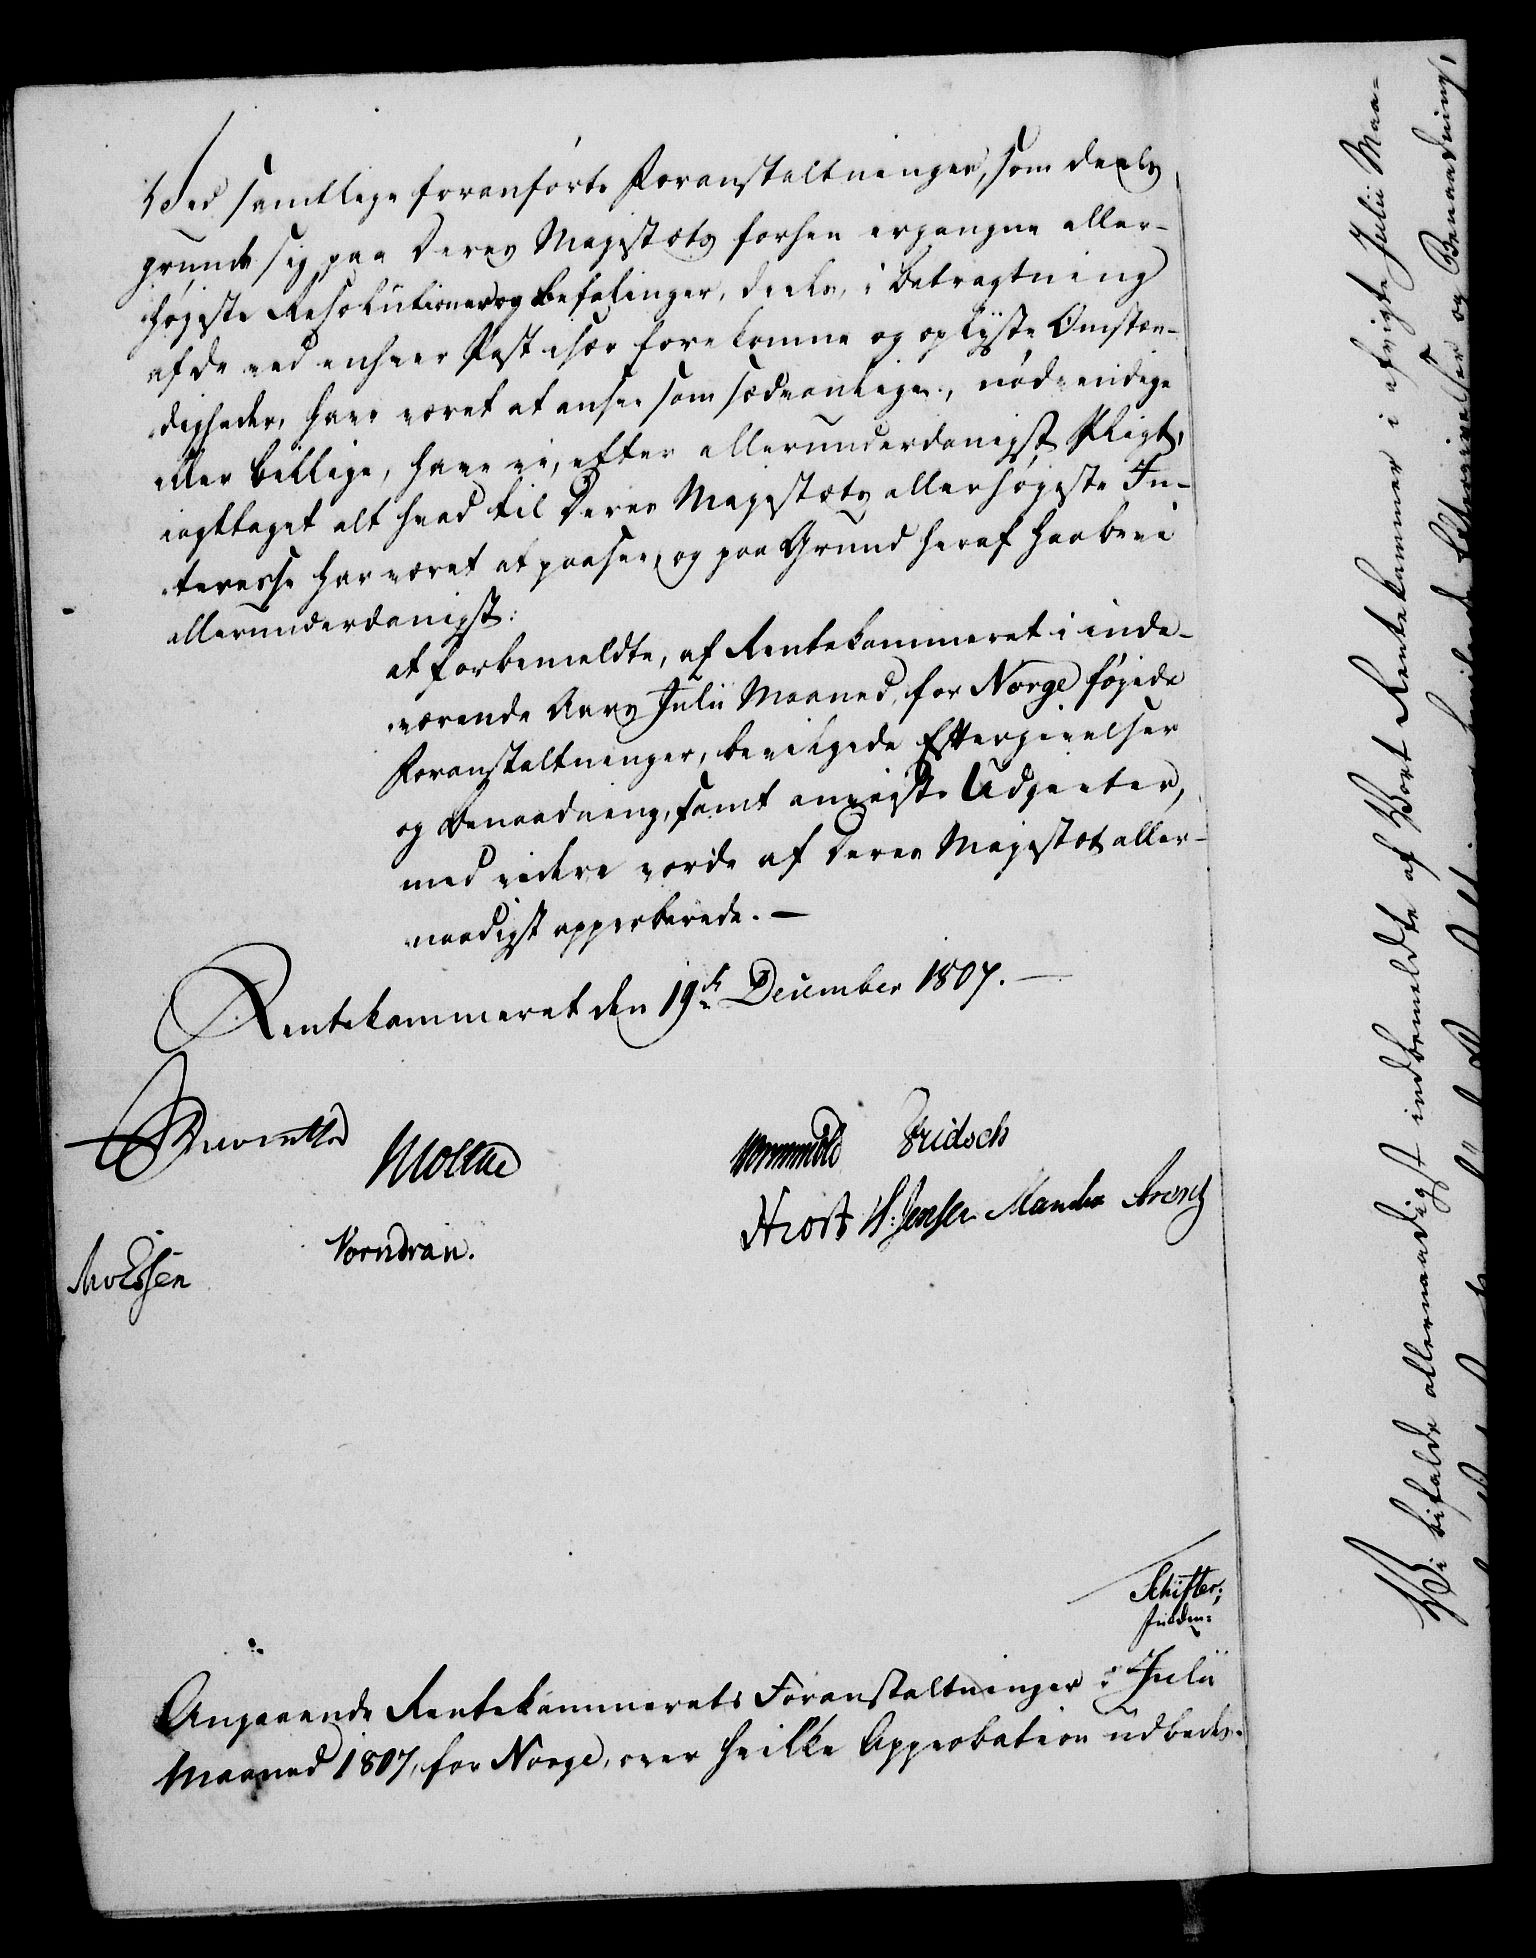 Ved samtlige foranførte Foranstaltninger, som deels
grunde sig paa Deres Majestæts forhen ergangne aller-
høieste Resolutioner og Befalinger, deels, i Betragtning
af de ved enhver Post især forekomne og oplyste Omstæn-
digheder, have været at ansee som sædvanlige, nødvendige
eller billige, have vi, efter allerunderdanigst Pligt,
iagttaget alt hvad til Deres Majestæts allerhøieste In-
teresse har været at paasee, og paa Grund heraf haabe vi
allerunderdanigst:
at forbemeldte, af Rentekammeret i inde-
værende Aars Julii Maaned, for Norge føiede
Foranstaltninger, bevilgede Eftergivelser
og Benaadning, samt anviiste Udgivter,
med videre vorde af Deres Majestæt aller-
naadigst approberede. —
Rentekammeret den 19de December 1807. —
Reventlow Moltke Wormskiold Fridsch
Hrost H: Jensen Manthe Arentz
MvEssen Vorndran.
Schifter;
Angaaende Rentekammerets Foranstaltninger i Julii
Maaned 1807, for Norge, over hvilke Approbation udbedes.
Vi bifalde allernaadigst indbemeldte af Vort Rentekammer i afvigte Julii Maa-
Eftergivelser og Benaadning,